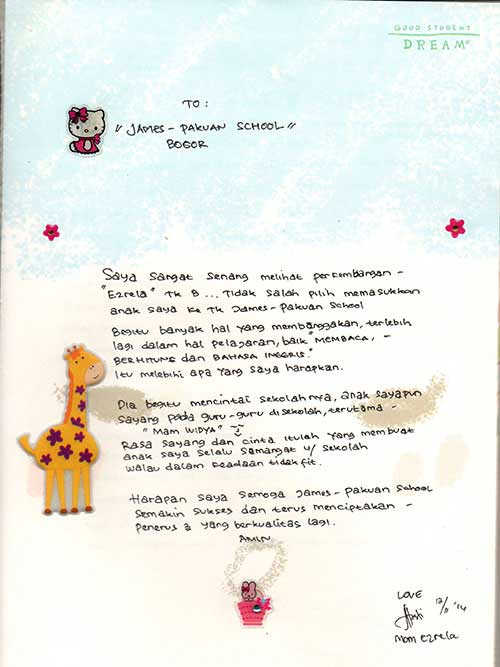 GOOD STUDENT
DREAM
TO :
"JAMES - PAKUAN SCHOOL"
BOGOR
Saya sangat senang melihat perkembangan -
"Ezrela" TK B ... Tidak salah pilih memasukkan
anak saya ke TK James - Pakuan School
Begitu banyak hal yang membanggakan, terlebih
lagi dalam hal pelajaran, baik "MEMBACA, -
BERHITUNG dan BAHASA INGGRIS."
Itu melebihi apa yang saya harapkan.
Dia begitu mencintai sekolahnya, anak sayapun
sayang pada guru-guru disekolah, terutama -
"MAM WIDYA"
Rasa sayang dan cinta itulah yang membuat
anak saya selalu samangat u/ sekolah
walau dalam keadaan tidak fit.
Harapan saya semoga James - Pakuan School
semakin sukses dan terus menciptakan -
Penerus 2 yang berkualitas lagi.
AMIN
LOVE
12/11 '14
Mom Ezrela